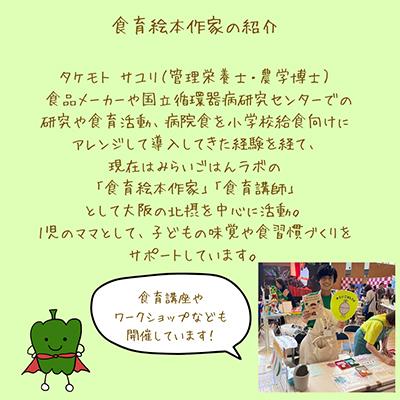 食育絵本作家の紹介
タケモト サユリ(管理栄養士・農学博士)
食品メーカーや国立循環器病研究センターでの
研究や食育活動、病院食を小学校給食向けに
アレンジして導入してきた経験を経て、
現在はみらいごはんラボの
「食育絵本作家」「食育講師」
として大阪の北摂を中心に活動。
1児のママとして、子どもの味覚や食習慣づくりを
サポートしています。
食育講座や
ワークショップなども
開催しています!